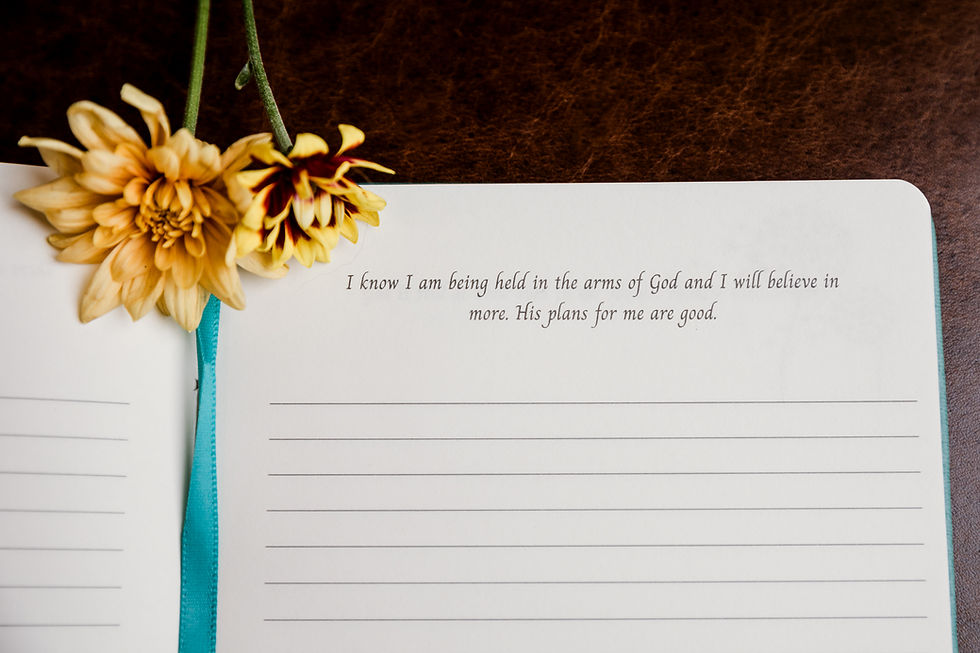 I know I am being held in the arms of God and I will believe in
more. His plans for me are good.